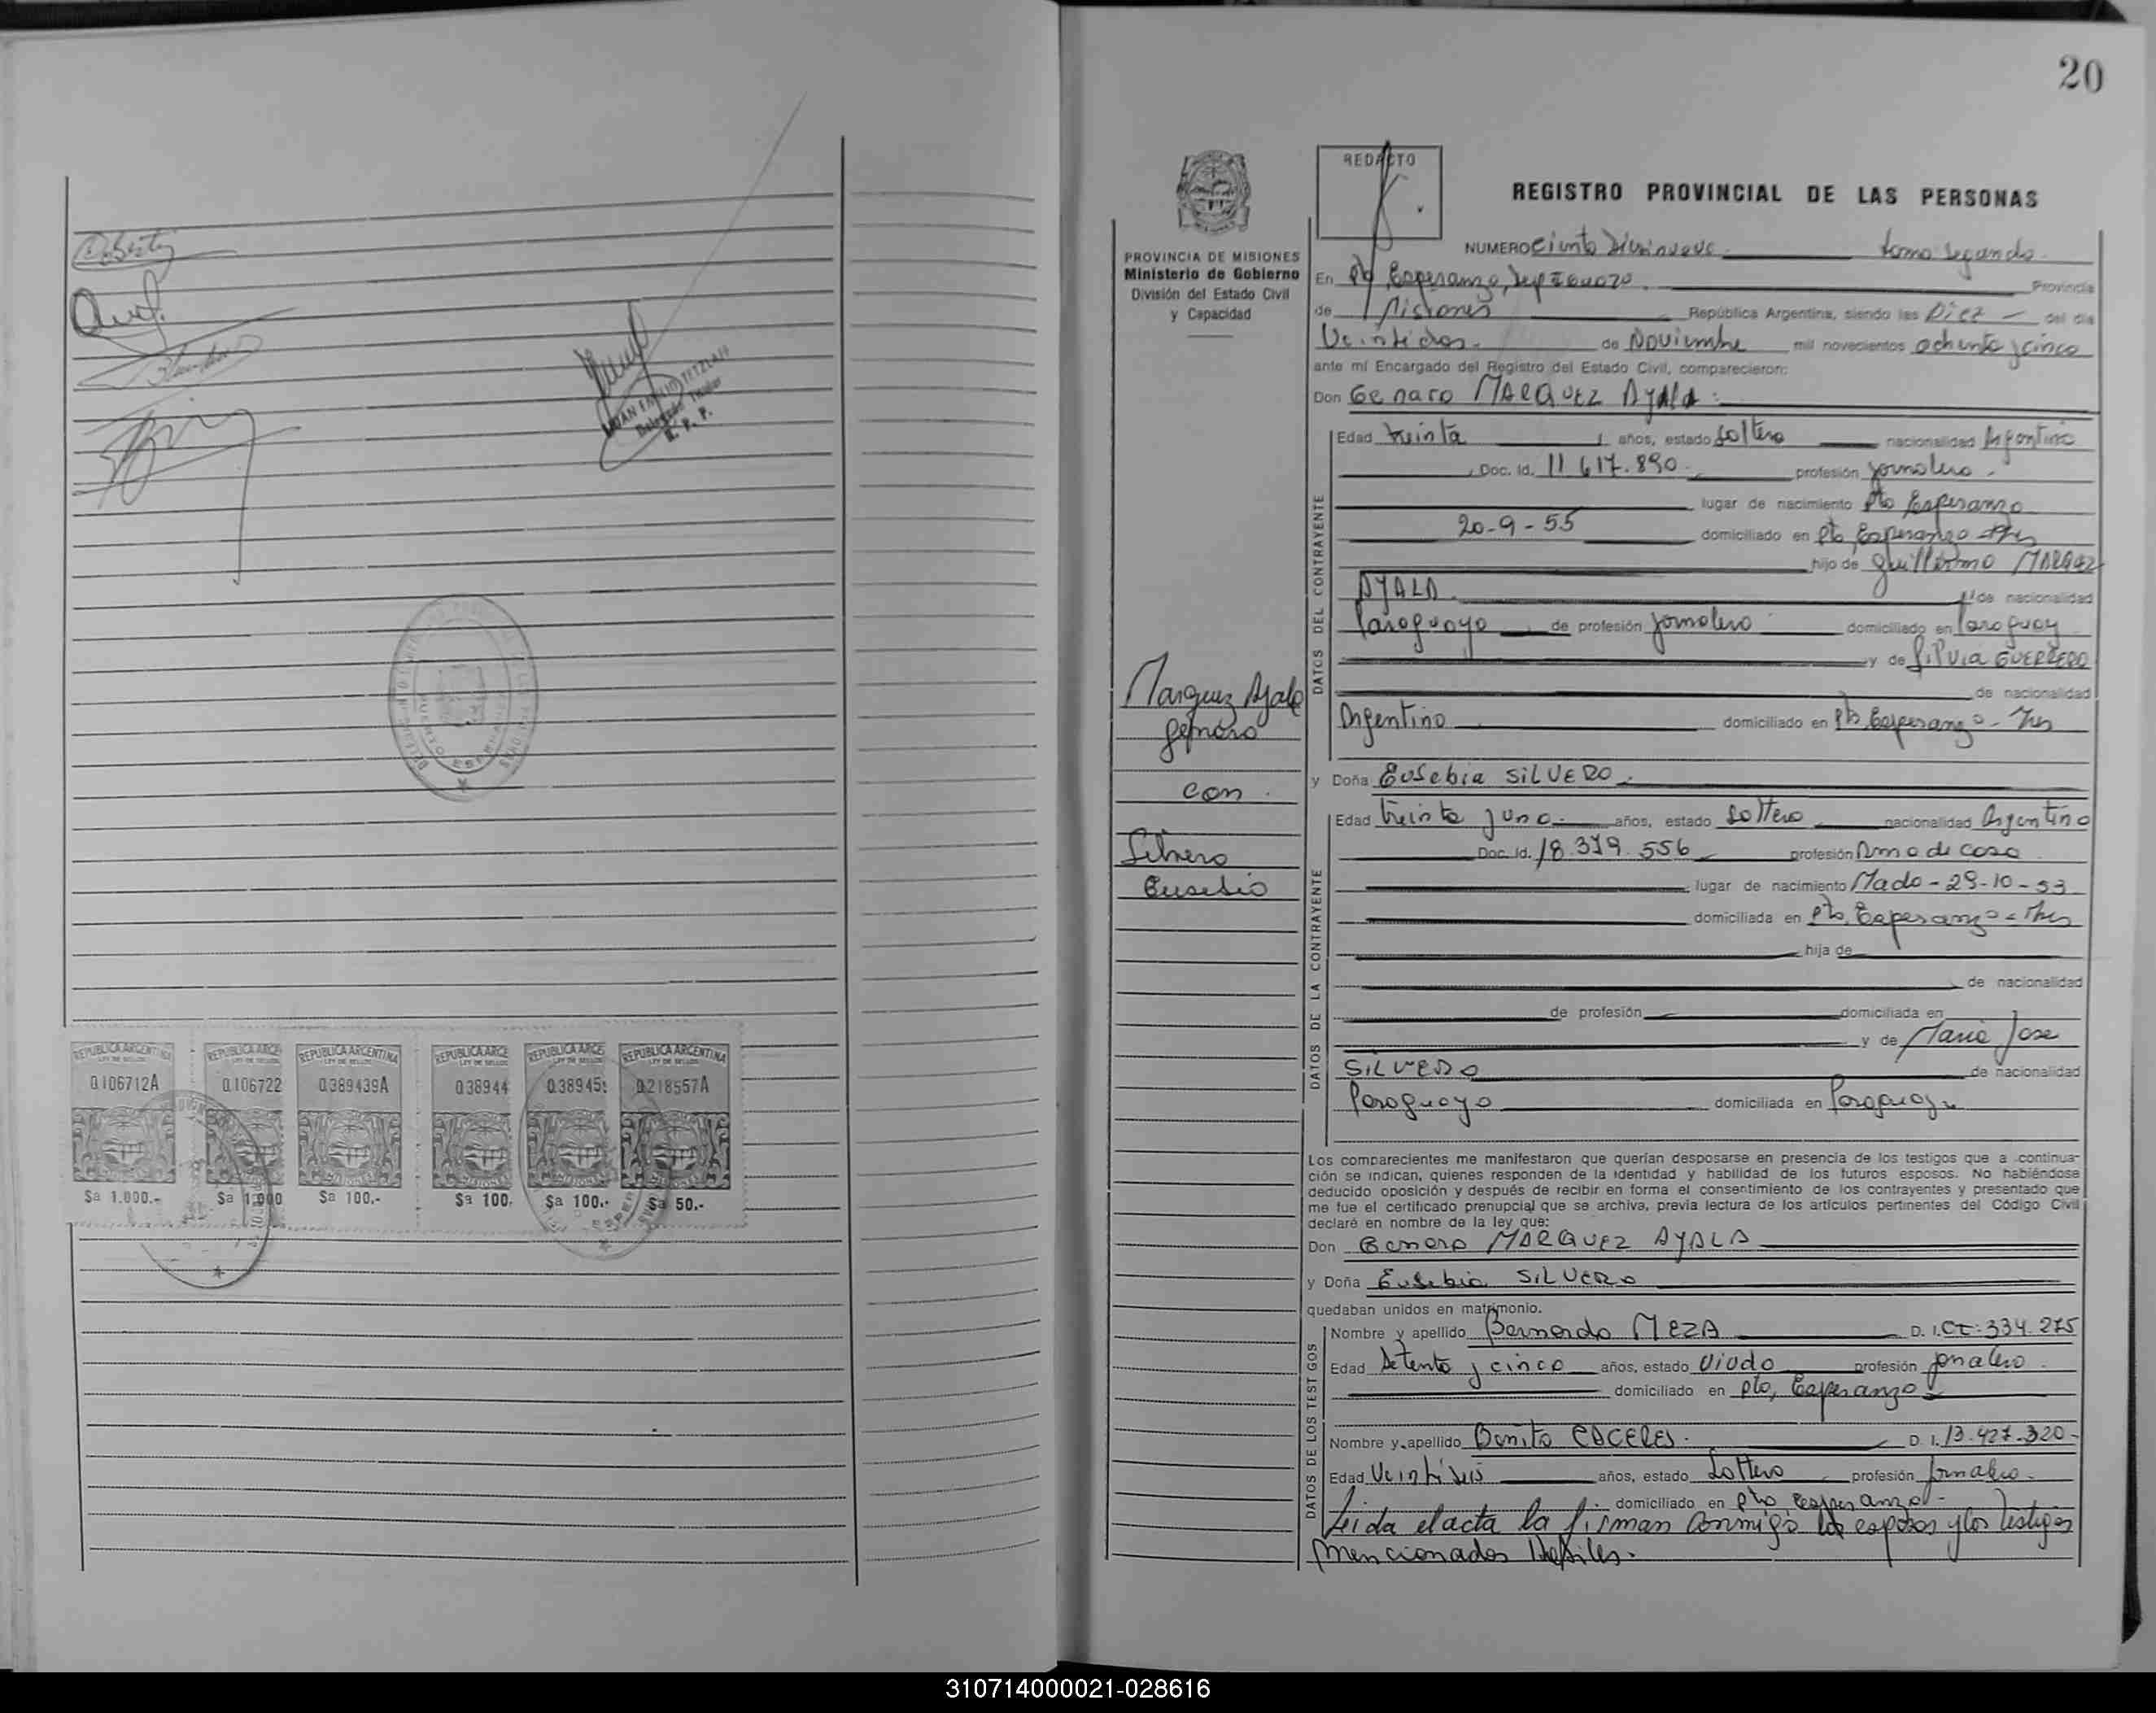 REPUBLICA ARGENTINA
LEY DE SELLOS
0.106712A
0.106722
0.389439A
0.38944
0.38945
0.218557A
$a 1.000.-
$a 1.000
$a 100.-
$a 100.
$a 100.-
$a 50.-
20
PROVINCIA DE MISIONES
Ministerio de Gobierno
División del Estado Civil
y Capacidad
Marquez Ayala
Genaro
con
Silvero
Eusebia
REDACTO
REGISTRO PROVINCIAL DE LAS PERSONAS
NUMERO Ciento Diecinueve tomo segundo.
En Pto Esperanza, Dep Iguazu. Provincia
de Misiones República Argentina, siendo las Diez del día
Veintidos. de Noviembre mil novecientos ochenta y cinco
ante mí Encargado del Registro del Estado Civil, comparecieron:
Don Genaro MARQUEZ AYALA.
DATOS DEL CONTRAYENTE
Edad treinta años, estado Soltero nacionalidad Argentina
Doc. Id. 11.617.890 profesión Jornalero.
lugar de nacimiento Pto Esperanza
20-9-55 domiciliado en Pto Esperanza - Mnes
hijo de Guillermo MARQUEZ
AYALA. de nacionalidad
Paraguaya de profesión Jornalero domiciliado en Paraguay
y de Silvia GUERRERO
de nacionalidad
Argentina domiciliado en Pto Esperanza - Mnes
y Doña Eusebia SILVERO.
DATOS DE LA CONTRAYENTE
Edad treinta y uno. años, estado Soltera nacionalidad Argentina
Doc. Id. 18.379.556 profesión Ama de casa
lugar de nacimiento Mado - 29-10-53
domiciliada en Pto, Esperanza - Mnes
hija de
de nacionalidad
de profesión domiciliada en
y de Maria Jose
SILVERO de nacionalidad
Paraguaya domiciliada en Paraguay
Los comparecientes me manifestaron que querían desposarse en presencia de los testigos que a continua-
ción se indican, quienes responden de la identidad y habilidad de los futuros esposos. No habiéndose
deducido oposición y después de recibir en forma el consentimiento de los contrayentes y presentado que
me fue el certificado prenupcial que se archiva, previa lectura de los artículos pertinentes del Código Civil
declaré en nombre de la ley que:
Don Genaro MARQUEZ AYALA
y Doña Eusebia SILVERO
quedaban unidos en matrimonio.
DATOS DE LOS TESTIGOS
Nombre y apellido Bernardo MEZA D. I. CI: 334.275
Edad Setenta y cinco años, estado Viudo profesión Jornalero.
domiciliado en Pto, Esperanza
Nombre y apellido Benito CACERES. D. I. 13.427.320-
Edad Veintiseis años, estado Soltero profesión Jornalero.
domiciliado en Pto Esperanza.
Leida el acta la firman conmigo los esposos y los testigos
mencionados
310714000021-028616